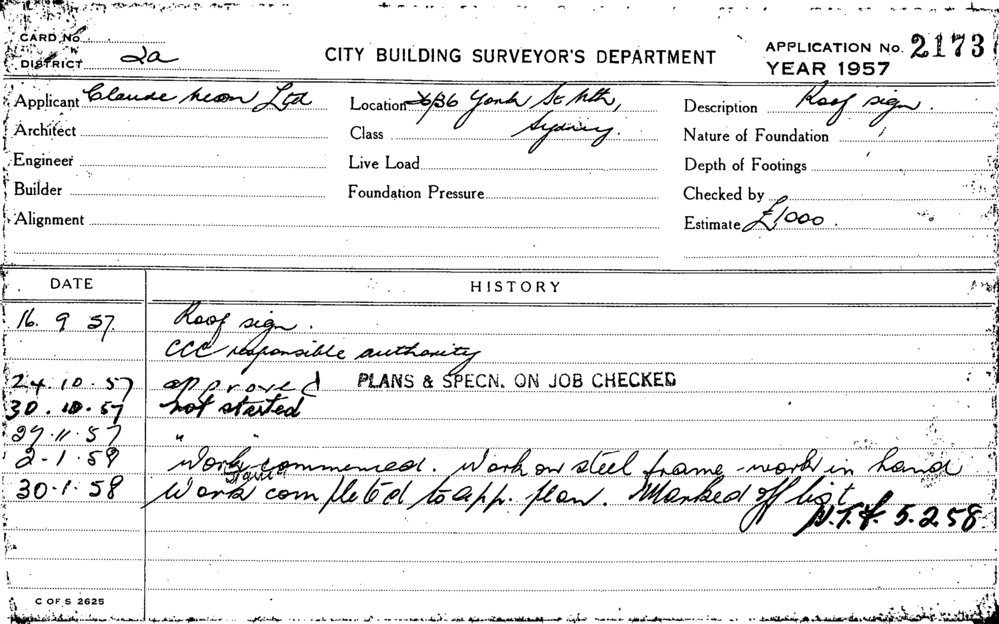 CARD No.
DISTRICT 2a
CITY BUILDING SURVEYOR'S DEPARTMENT
APPLICATION No. 2173
YEAR 1957
Applicant Claude Neon Ltd
Location 36 York St Nth,
Sydney.
Description Roof sign.
Architect
Class
Nature of Foundation
Engineer
Live Load
Depth of Footings
Builder
Foundation Pressure
Checked by
Alignment
Estimate £1000.
DATE HISTORY
16. 9 57. Roof sign.
CCC responsible authority
24.10.57 approved PLANS & SPECN. ON JOB CHECKED
30.10.57 not started
27.11.57 " "
2-1.58 Work commenced. Work on steel frame-work in hand
30.1.58 Work completed to app. plan. Marked off list
N.T.F. 5.2.58.
C OF S 2625